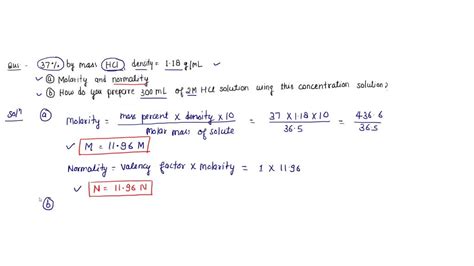 Qus: 37% by mass HCl, density = 1.18 g/mL
(a) Molarity and normality
(b) How do you prepare 300 mL of 2M HCl solution using this concentration solution?
Solⁿ (a) Molarity = mass percent × density × 10 / Molar mass of solute = 37 × 1.18 × 10 / 36.5 = 436.6 / 36.5
M = 11.96 M
Normality = Valency factor × Molarity = 1 × 11.96
N = 11.96 N
(b)